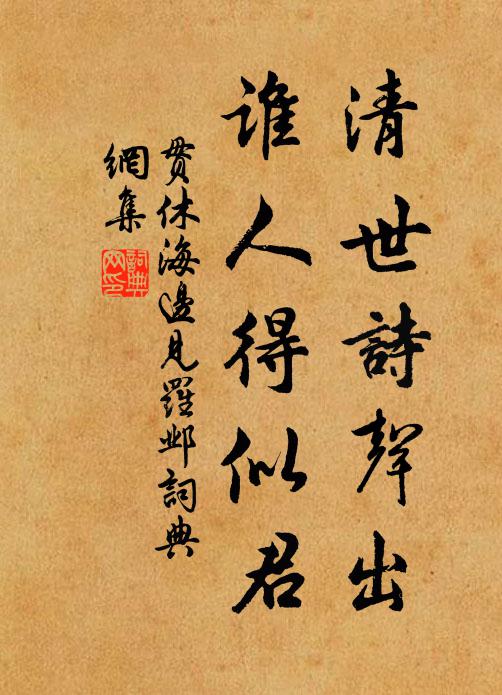 清世詩聲出
誰人得似君
貫休海邊見羅鄴詞典
網集
詞典
网印